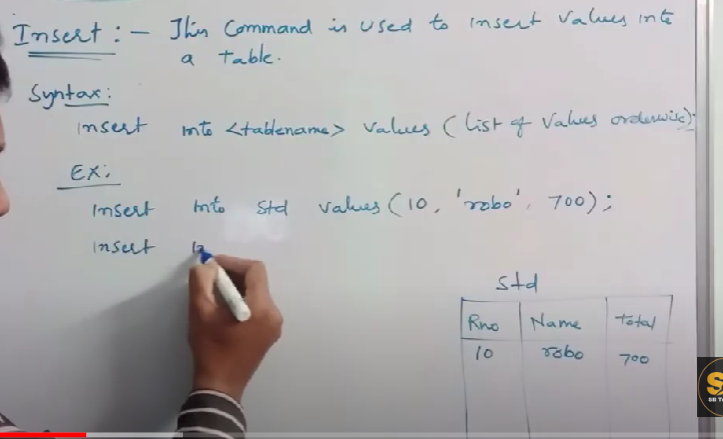 Insert :- This Command is used to insert values into
a table.
Syntax:
insert into <tablename> values (list of values orderwise);
EX:
insert into std values (10, 'robo', 700);
insert in
std
Rno Name Total
10 robo 700